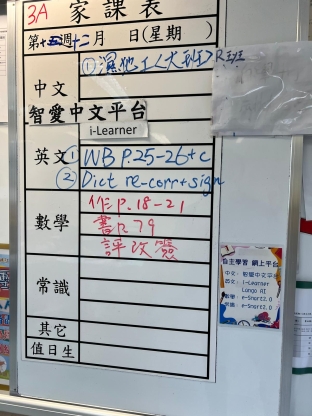 3A 家課表
第十五週十二月 日(星期 )
中文 ①濕地工〈大班〉R班
智愛中文平台
i-Learner
英文 ① WB P.25-26+c
② Dict re-corr+sign
數學 作:p.18-21
書:p.79
評改簽
常識
其它
值日生
自主學習 網上平台
中文: 智愛中文平台
英文: i-Learner
Longo AI
數學: e-Smart2.0
常識: e-Smart2.0